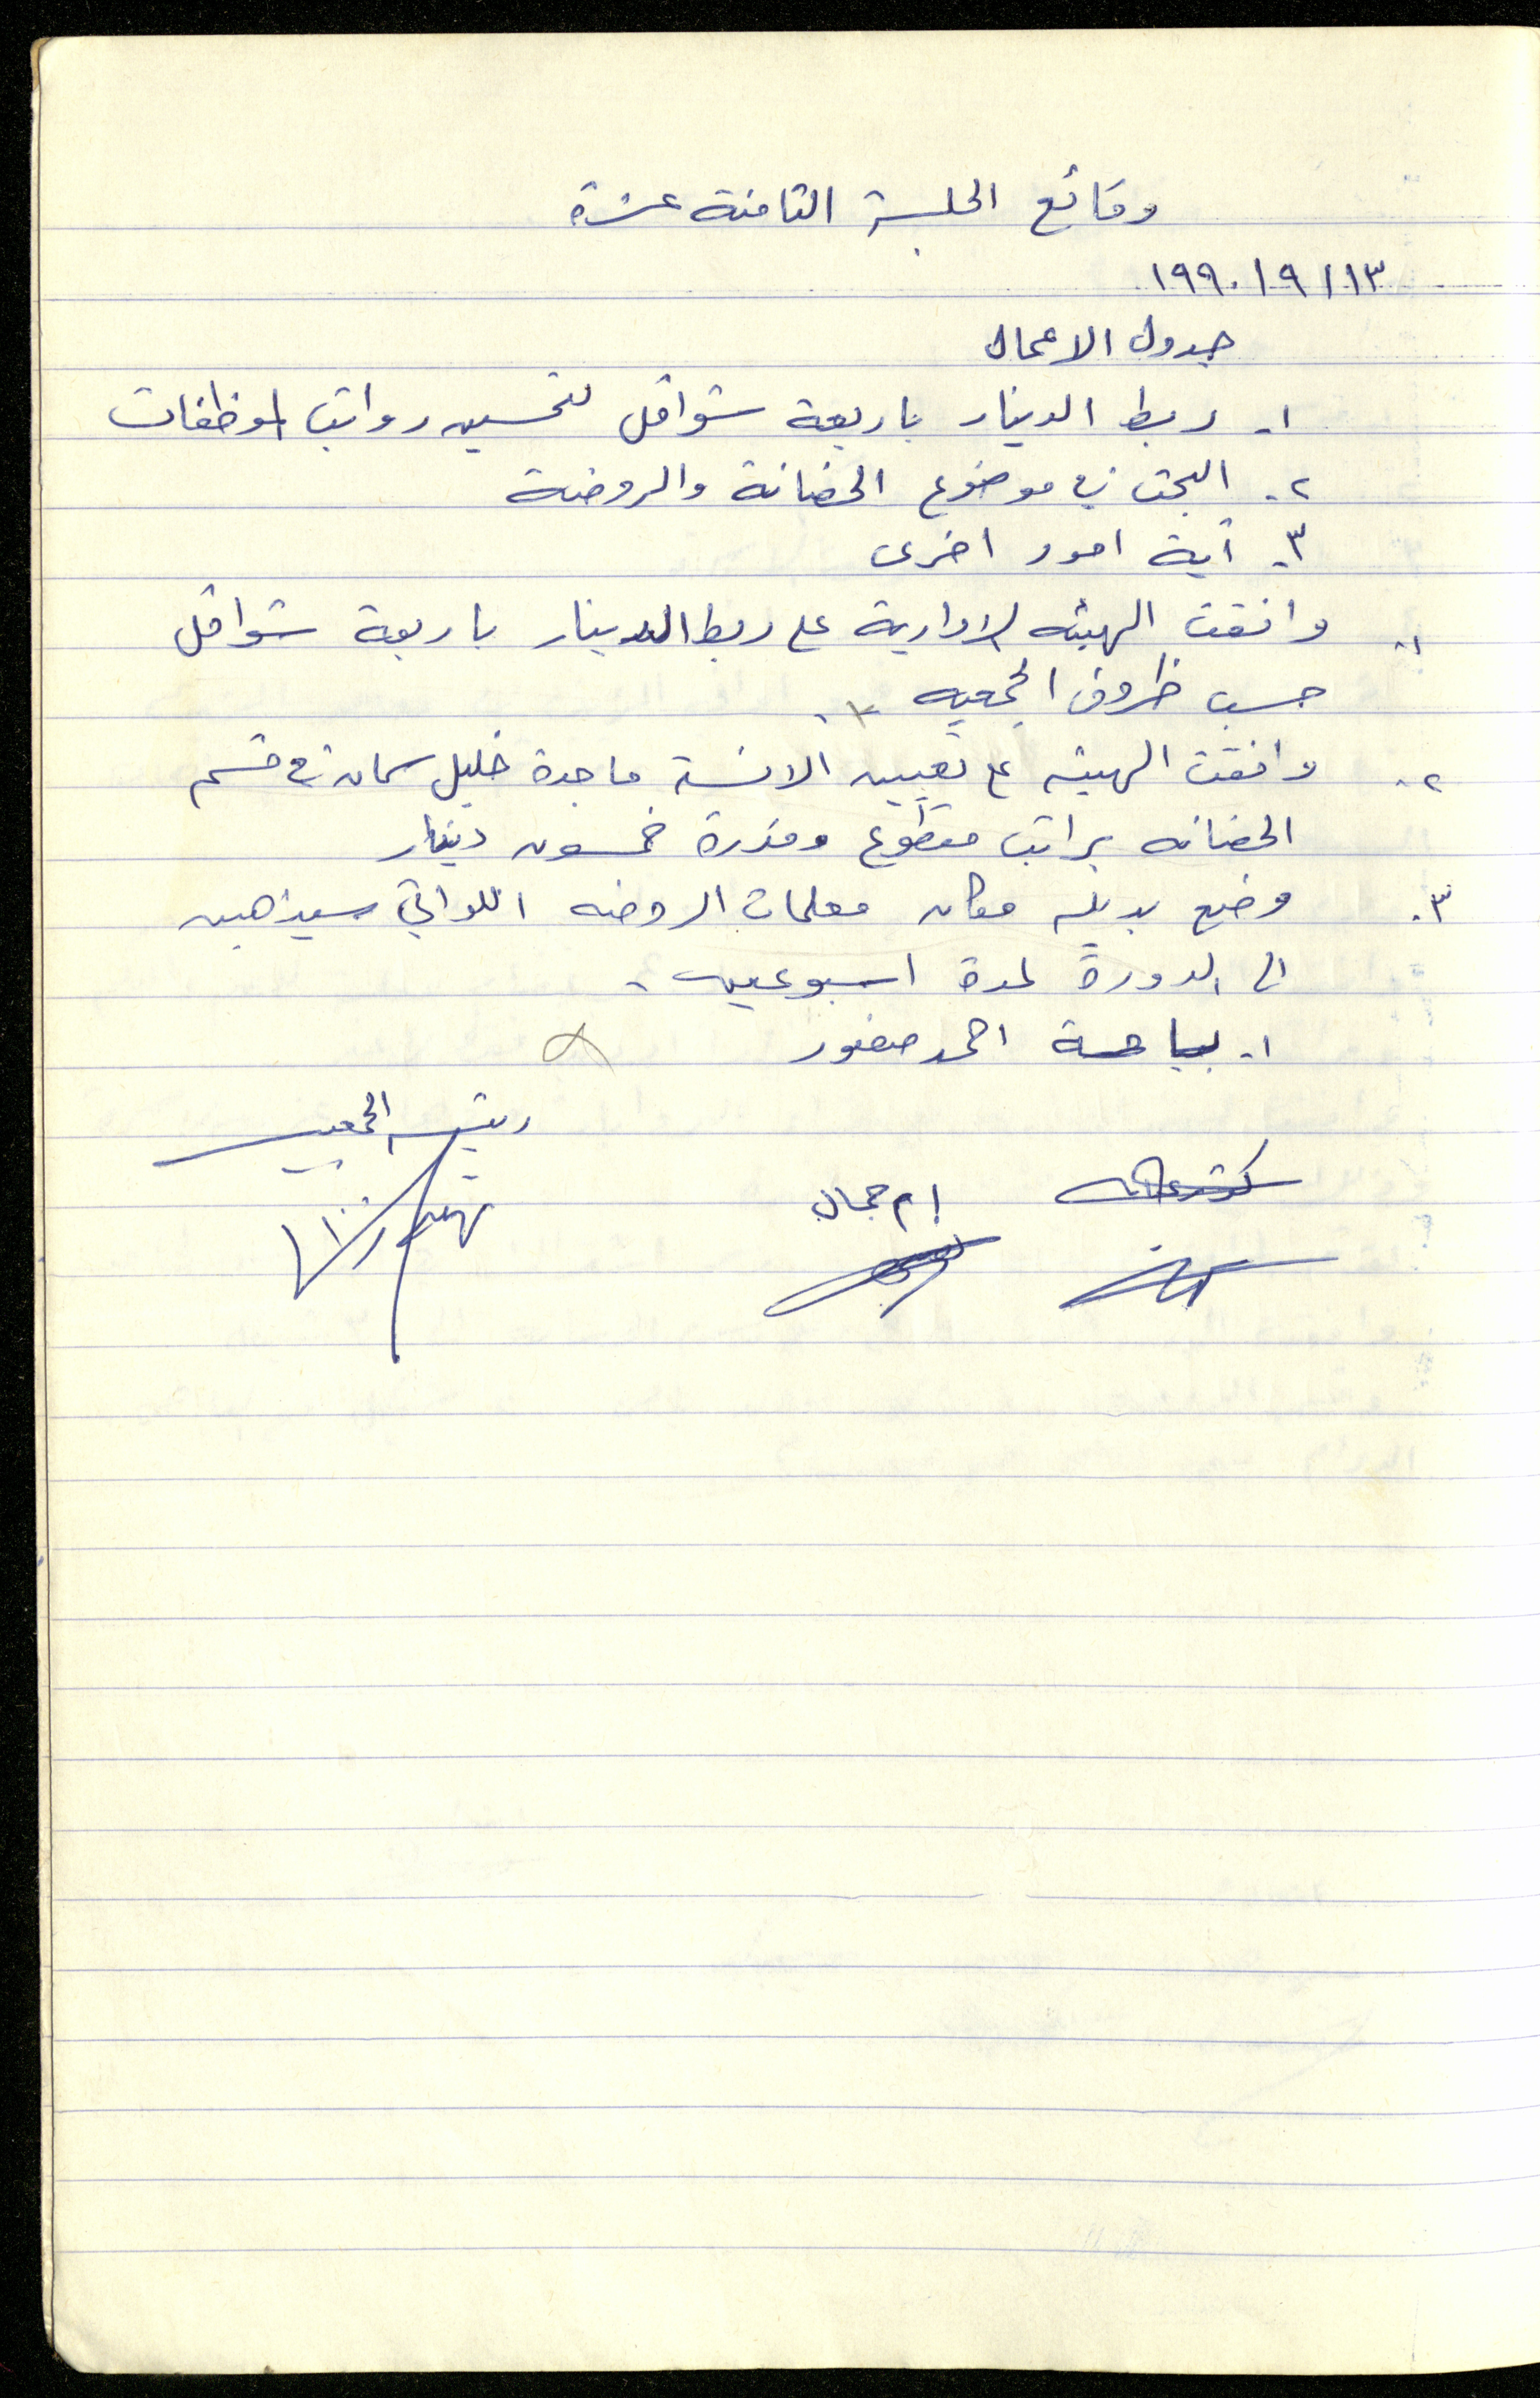 وقائع الجلسة الثامنة عشرة
١٣ / ٩ / ١٩٩٠
جدول الاعمال
١- ربط الدينار باربعة شواقل لتحسين رواتب الموظفات
٢- البحث في موضوع الحضانة والروضة
٣- أية امور اخرى
١- وافقت الهيئه الادارية على ربط الدينار باربعة شواقل
حسب ظروف الجمعيه .
٢- وافقت الهيئه على تعيين الانسة ماجدة خليل سمان في قسم
الحضانه براتب مقطوع وقدرة خمسون دينار
٣- وضع بديله مكان معلمات الروضه اللواتي سيذهبن
الى الدورة لمدة اسبوعين .
١- احمد منصور
رئيسه الجمعيه
ام جمال